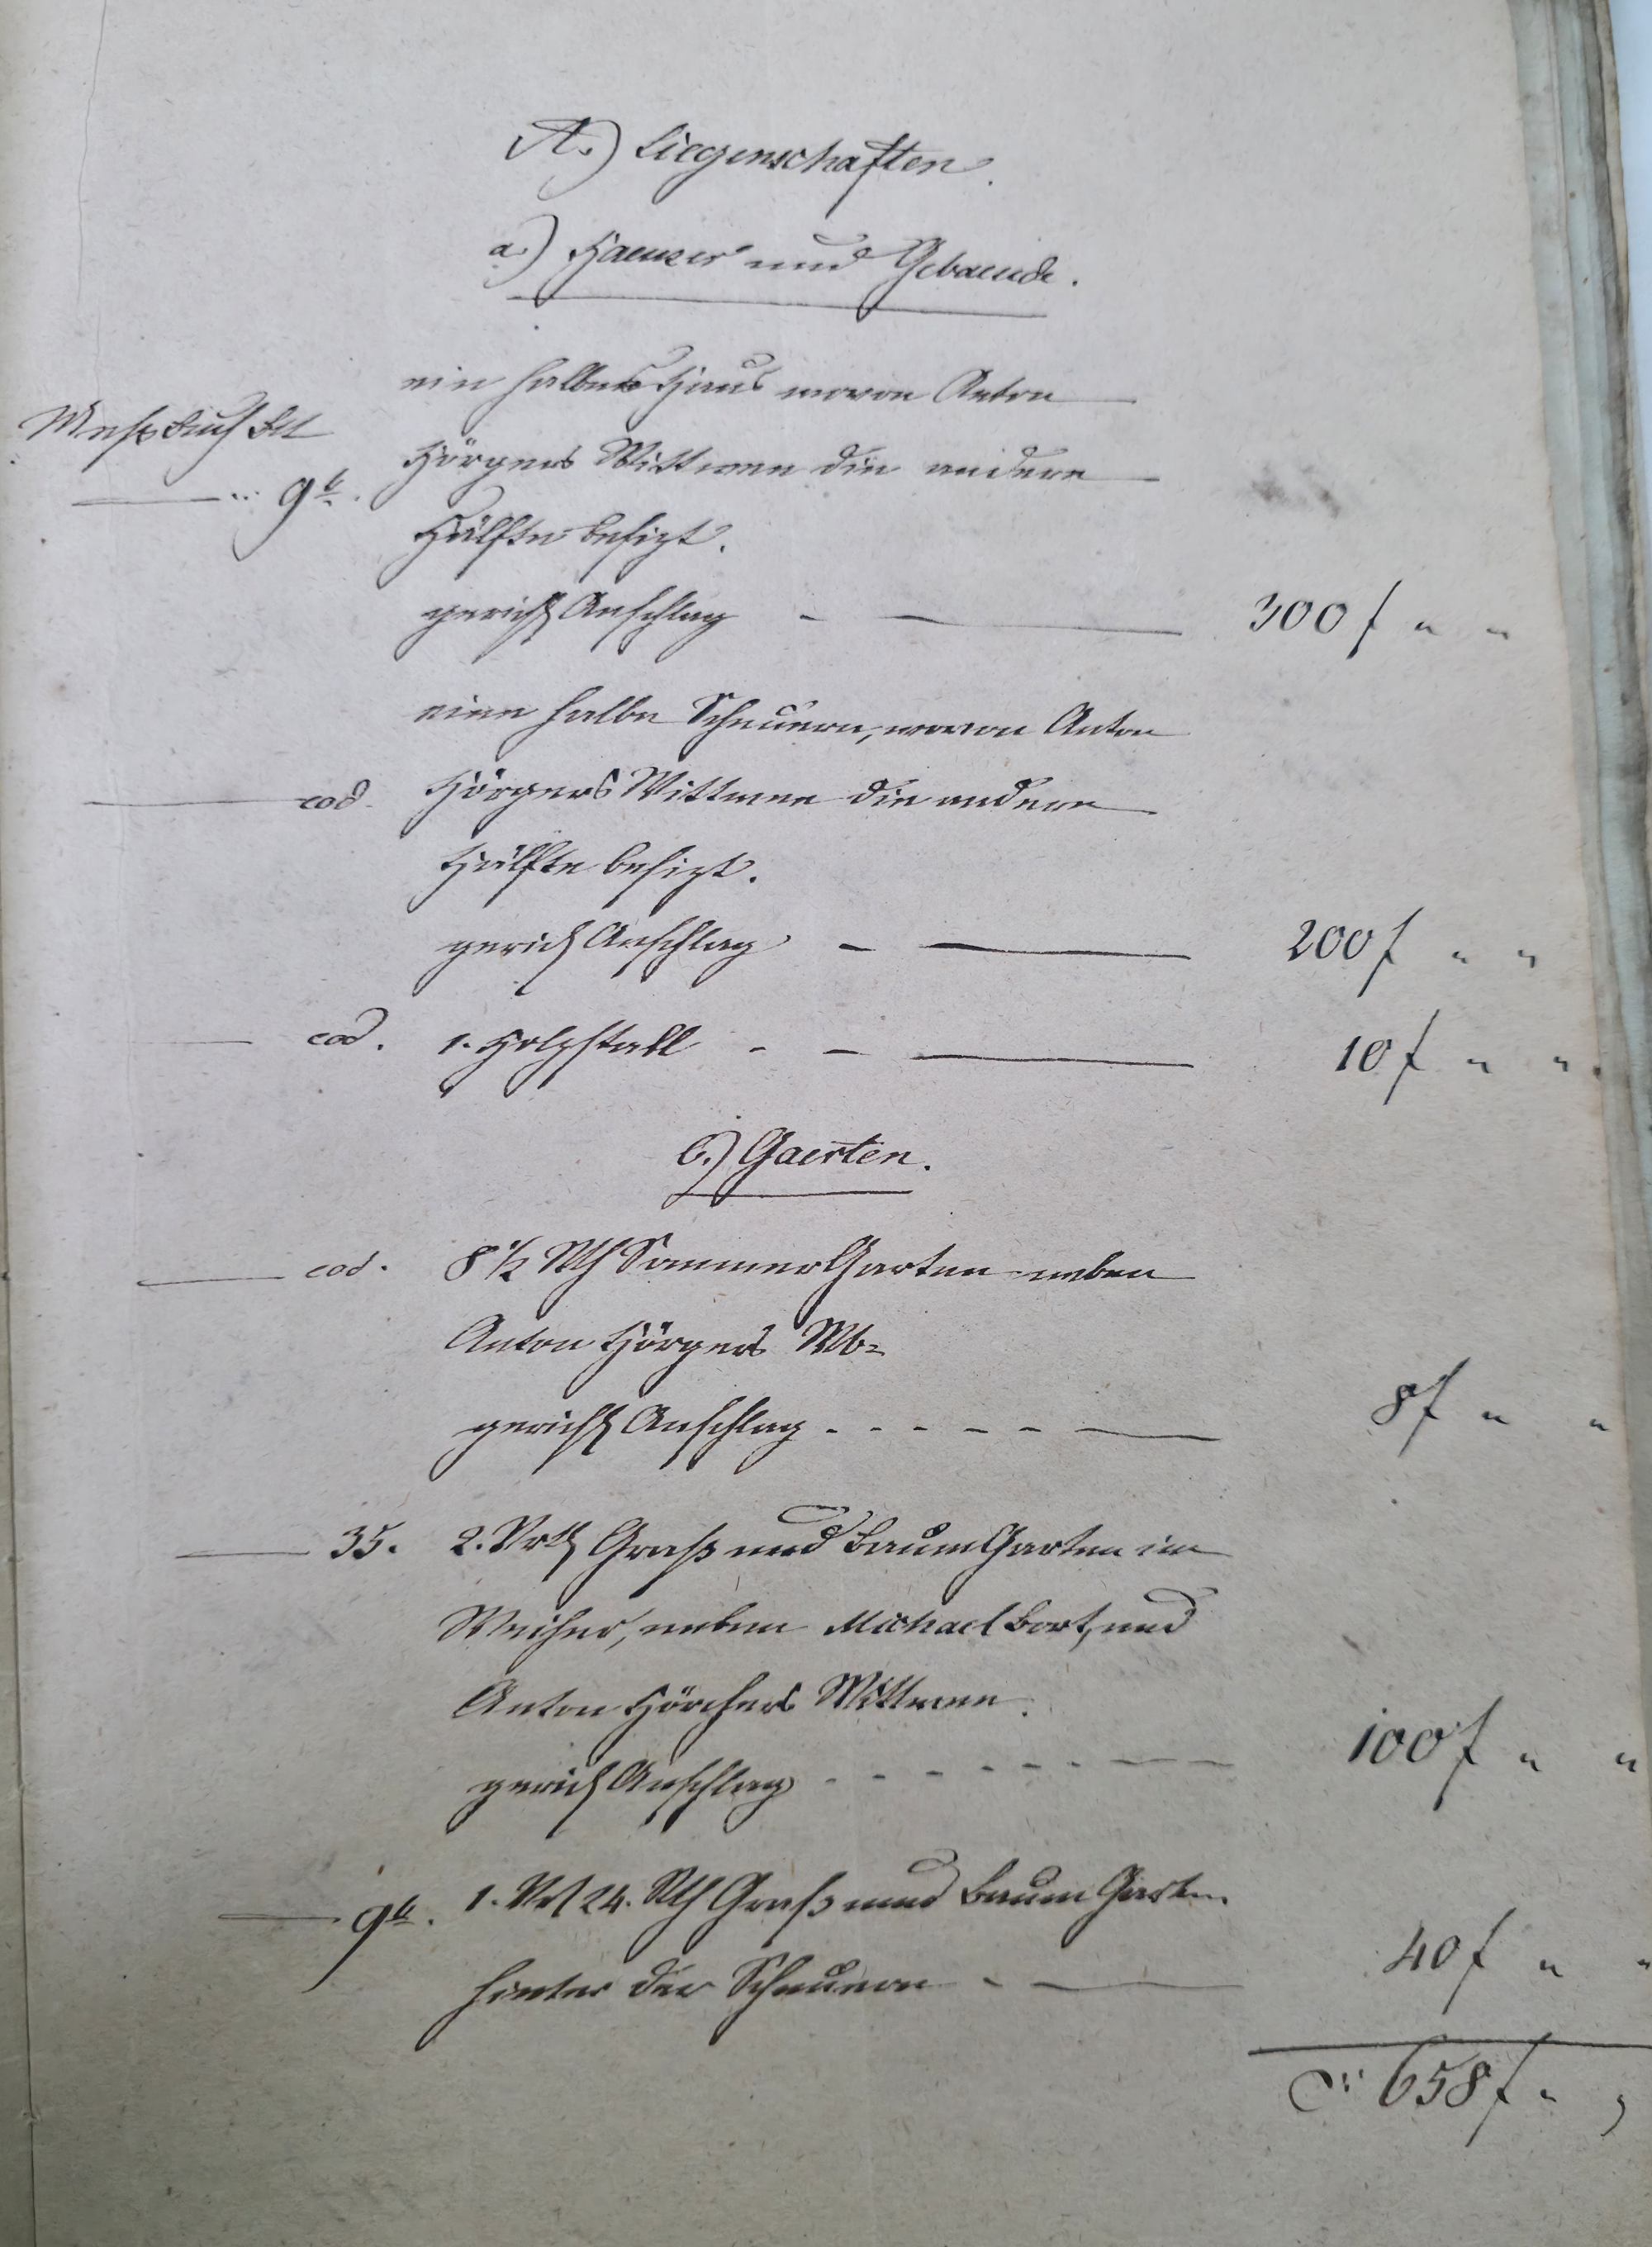 A.) Liegenschaften.
a.) Haeuser und Gebaeude.
ein halbes Haus wovon Anton
Meßbuch Bll
Hörgers Wittwee die andere
9b.
Hälfte besizt.
gerichtl Anschlag - — 300 f " "
eine halbe Scheuern, wovon Anton
eod. Hörgers Wittwee die andere
Hälfte besizt.
gerichl Anschlag - — 200 f " "
eod. 1. Holzstall - - — 10 f " "
b.) Gaerten.
eod. 8 1/2 Rth Sommer Garten neben
Anton Hörgers Wb=
gerichtl Anschlag - - - - - — 8 f " "
35. 2. Vrtl Graß und Baum Garten im
Weiher, neben Michael Bort, und
Anton Hörchers Wittwee.
gerichl Anschlag - - - - - - — 100 f " "
9b. 1. Vrl 24. Rth Graß und Baum Garten
hinter der Scheuern - — 40 f " "
658 f "